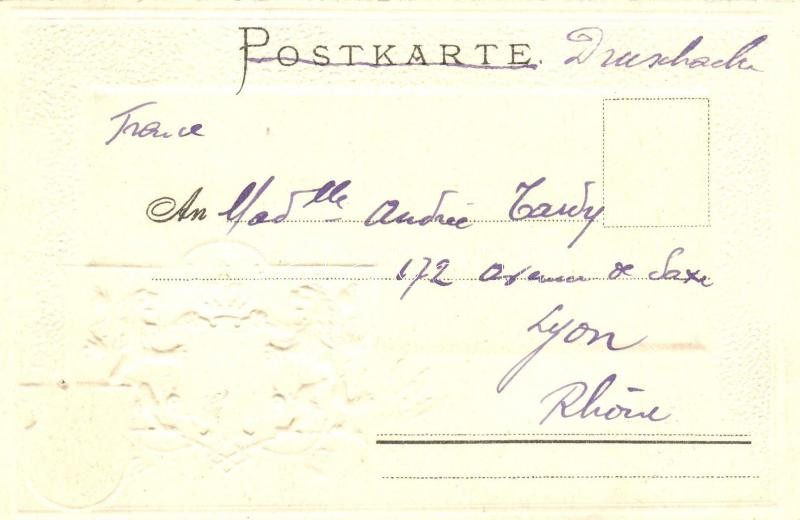 POSTKARTE. Drucksache
France
An Mad^lle Andrée Tardy
172 avenue de Saxe
Lyon
Rhône